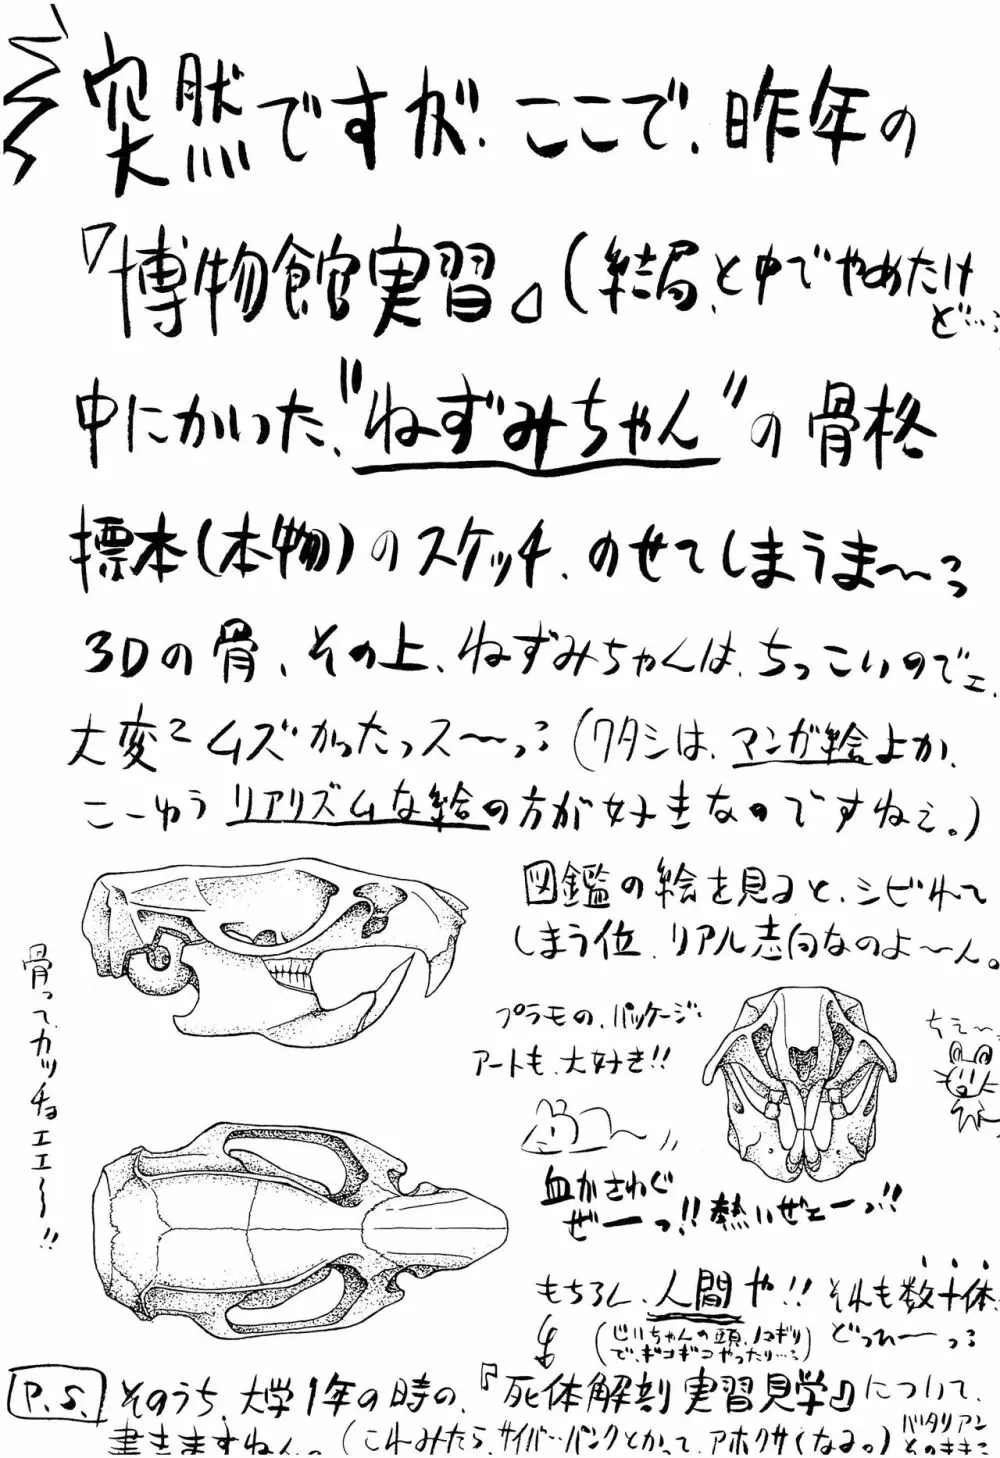 突然ですが、ここで、昨年の
『博物館実習』(結局、と中でやめたけ
ど…
中にかいた、"ねずみちゃん"の骨格
標本(本物)のスケッチ、のせてしまうま〜っ
3Dの骨、その上、ねずみちゃんは、ちっこいのでェ、
大変ムズかったっス〜っ
(ワタシは、マンガ絵よか、
こーゆうリアリズムな絵の方が好きなのですねェ。)
図鑑の絵を見ると、シビれて
しまう位、リアル志向なのよ〜ん。
プラモの、パッケージ
アートも、大好き!!
骨って、カッチョエエ〜!!
ちえ〜
血がさわぐ
ぜーっ!!熱いぜェーっ!!
もちろん、人間や!!それも数十体
どっひーっ
(じいちゃんの頭、ノコギリ
で、ギコギコやったり…)
P.S. そのうち、大学1年の時の、『死体解剖実習見学』について、
書きますねん。(これみたら、サイバーパンクとかって、アホクサくなる。)
バタリアン
そのまま